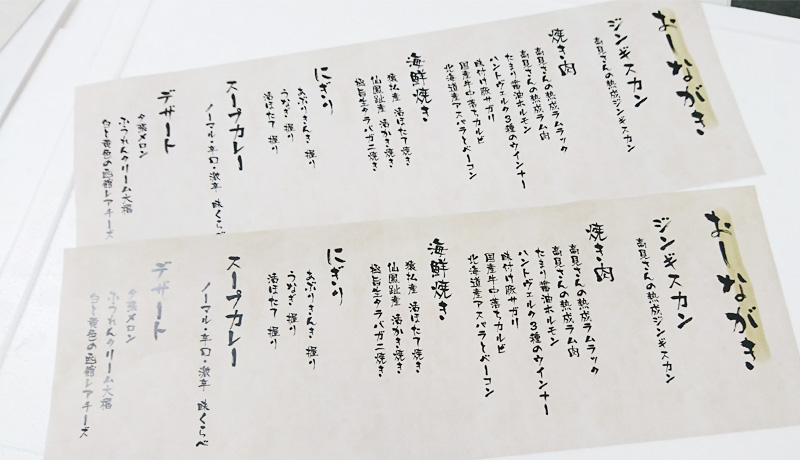 おしながき
ジンギスカン
高見さんの熟成ジンギスカン
焼き肉
高見さんの熟成ラムラック
高見さんの熟成ラム肉
たまり醤油ホルモン
ハントヴェルク3種のウインナー
味付け豚サガリ
国産牛中落ちカルビ
北海道産アスパラとベーコン
海鮮焼き
猿払産 活ほたて焼き
仙鳳趾産 活かき焼き
極旨生タラバガニ焼き
にぎり
あぶりきんき 握り
うなぎ 握り
活ほたて 握り
スープカレー
ノーマル・辛口・激辛 味くらべ
デザート
夕張メロン
ふうれんクリーム大福
白と黄色の函館レアチーズ
おしながき
ジンギスカン
高見さんの熟成ジンギスカン
焼き肉
高見さんの熟成ラムラック
高見さんの熟成ラム肉
たまり醤油ホルモン
ハントヴェルク3種のウインナー
味付け豚サガリ
国産牛中落ちカルビ
北海道産アスパラとベーコン
海鮮焼き
猿払産 活ほたて焼き
仙鳳趾産 活かき焼き
極旨生タラバガニ焼き
にぎり
あぶりきんき 握り
うなぎ 握り
活ほたて 握り
スープカレー
ノーマル・辛口・激辛 味くらべ
デザート
夕張メロン
ふうれんクリーム大福
白と黄色の函館レアチーズ